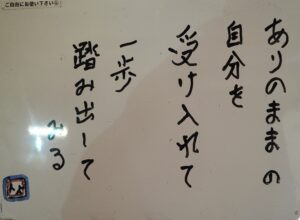 ご自由にお使い下さい
ありのままの
自分を
受け入れて
一歩
踏み出して
みる